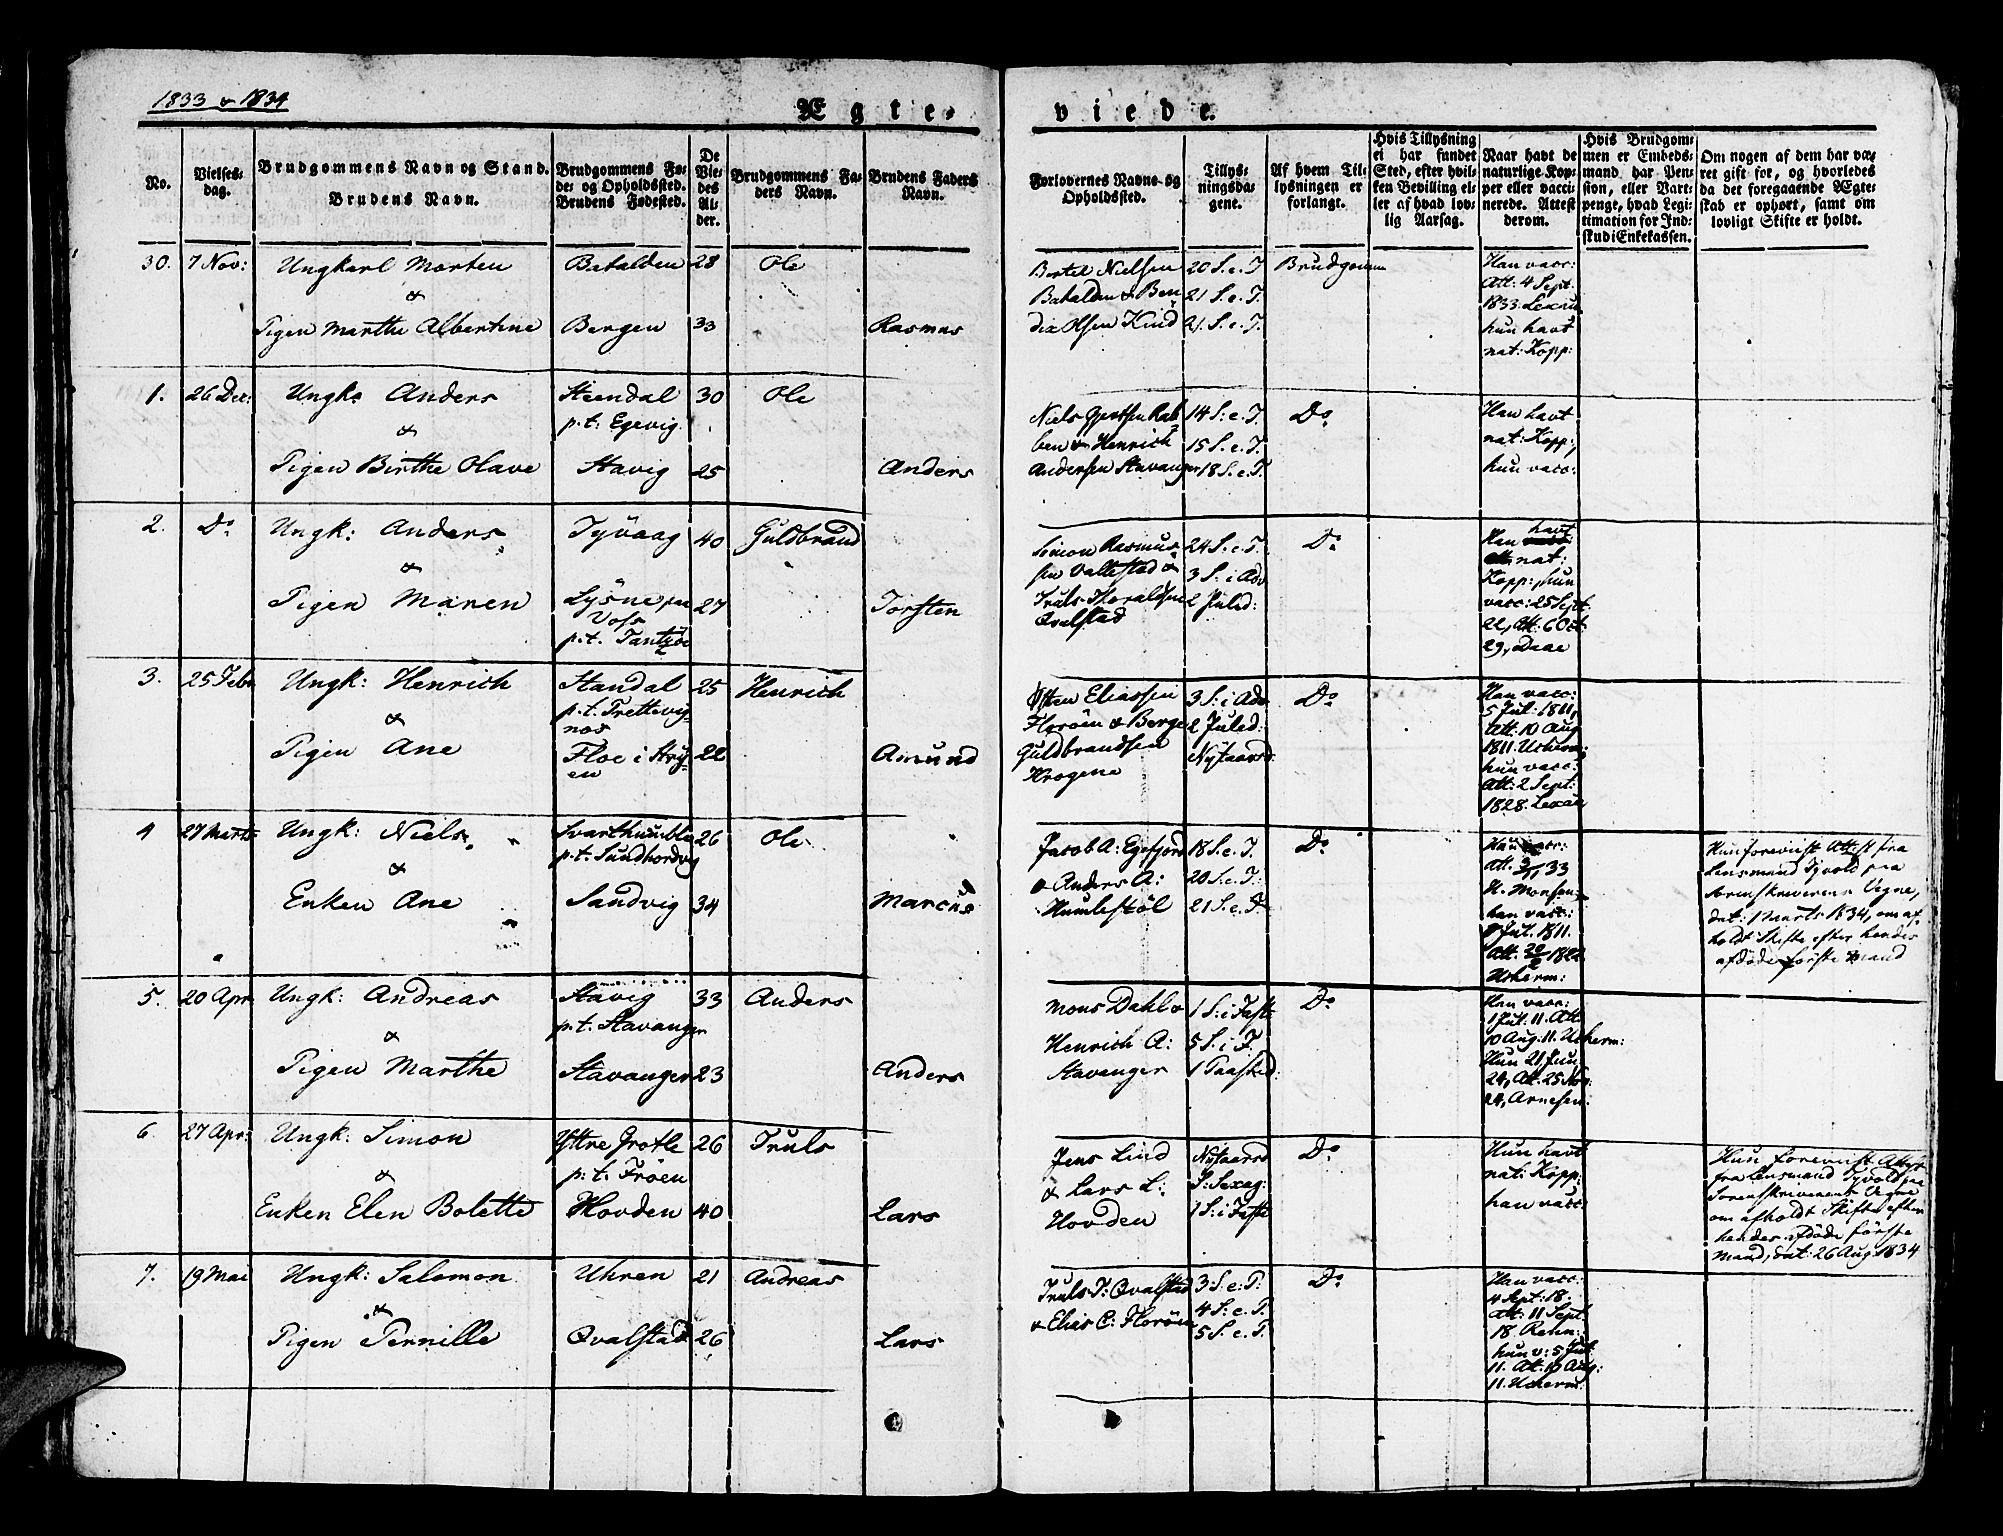 1833 & 1834
Ægteviede.
No.
Vielsesdag.
Brudgommens Navn og Stand.
Brudens Navn.
Brudgommens Føde- og Opholdssted.
Brudens Fødested.
De Viedes Alder.
Brudgommens Faders Navn.
Brudens Faders Navn.
Forlovernes Navne og Opholdssted.
Tillysningsdagene.
Af hvem Tillysningen er forlangt.
Hvis Tillysning ei har fundet Sted, efter hvilken Bevilling eller af hvad lovlig Aarsag.
Naar havt de naturlige Kopper eller vaccinerede. Attest derom.
Hvis Brudgommen er Embedsmand, har Pension, eller Vartpenge, hvad Legitimation for Indskud i Enkekassen.
Om nogen af dem har været gift for, og hvorledes da det foregaaende Ægteskab er ophørt, samt om lovligt Skifte er holdt.
30. 7 Nov: Ungkarl Morten Batalden 28 Ole
&
Pigen Marthe Albertine Bergen 33 Rasmus
Bertel Nielsen 20 S. e. T. Brudgommen
Batalden & Ben 21 S. e. T.
dix Olsen Kind 21. S. e. T.
Han vacc:
Att: 4 Sept
1833. Lexau
hun havt
nat: Kopp:
1. 26 Dec: Ungk: Anders Steendal 30 Ole
p.t: Egevig.
&
Pigen Birthe Olave Stavig 25 Anders
Niels Gjertsen Rab 14 S. e. T. Do
ben & Henrich 15 S. e. T.
Andersen Stavanger 18 S. e. T.
Han havt
nat: Kopp:,
hun vacc:
2. Do Ungk: Anders Tyvaag 40 Guldbrand
&
Pigen Maren Lysne paa 27 Torsten
Voss
p.t. Tantzøe
Simon Rasmus 24 S. e. T. Do
sen Vallestad & 3 S. i Adv
Truls Haraldsen 2 Juled:
Qvalstad
havt
Han
nat:
Kopp:, hun
vacc: 25 Sept
22, Att: 6 Oct
29, Daae
3. 25 Febr Ungk: Henrich Standal 25 Henrich
p.t. Trettevig
næs
&
Pigen Ane Floe i Stry 22 Amund
en
Østen Eliassen 3 S: i Adv Do
Florøen & Berge 2 Juled:
Guldbrandsen Nytaarsd:
Krogene
Han vacc:
5 Jul: 1811,
Att: 10 Aug
1811. Ucherm:
hun vacc:
Att: 2 Sept:
1828. Lexau
4 27 Marts Ungk: Niels Svarthumble 26 Ole
p.t. Sundhordvig
&
Enken Ane Sandvig 34 Marcus
Jacob A: Egefjord 18 S. e. T. Do
& Anders A: 20 S. e. T:
Humlestøl 21 S. e. T
Hun vacc:
Att: 33
H. Monsen:,
han vacc:
Jul. 1811.
Att: 1822
Ucherm:
Hun foreviist Attest fra
Lensmand Tyvold paa
Sorenskriverens Vegne,
dat: 1 Marts 1834, om af
holdt Skifte efter hendes
afdøde første Mand
5. 20 Apr Ungk: Andreas Stavig 33 Anders
p.t. Stavanger
&
Pigen Marthe Stavanger 23 Anders
Mons Dahl & 1 S: i Faste Do
Henrich A: 5 S: i F.
Stavanger 1 Paasked:
Han vacc:
1 Jul. 11. Att
10 Aug. 11. Ucherm:
Hun 21 Jun
24, Att. 25 Nov
24, Arnesen:
6. 27 Apr: Ungk: Simon Yttre Grotle 26 Truls
p.t. Frøen
&
Enken Elen Bolette Hovden 40 Lars
Jens Lind Nytaarsd Do
& Lars L: S: Sexag:
Hovden 1 S: i Faste
Hun havt
nat: Kopp:
han vacc:
Hun foreviist Attest
fra Lensmand Tyvold paa
Sorenskriverens Vegne
om afholdt Skifte efter
hendes afdøde første
Mand, dat: 26 Aug 1834
7. 19 Mai Ungk: Salomon Uhren 21 Andreas
&
Pigen Pernille Qvalstad 26 Lars
Truls T: Qvalstad 3 S. e. P: Do
& Elias E: Florøen 4 S: e. P.
5 S. e. P.
Han vacc:
4 Sept: 18.
Att: 11 Sept.
18. Rahm:
hun v: 5 Jul
11. Att: 10 Aug:
11. Ucherm: